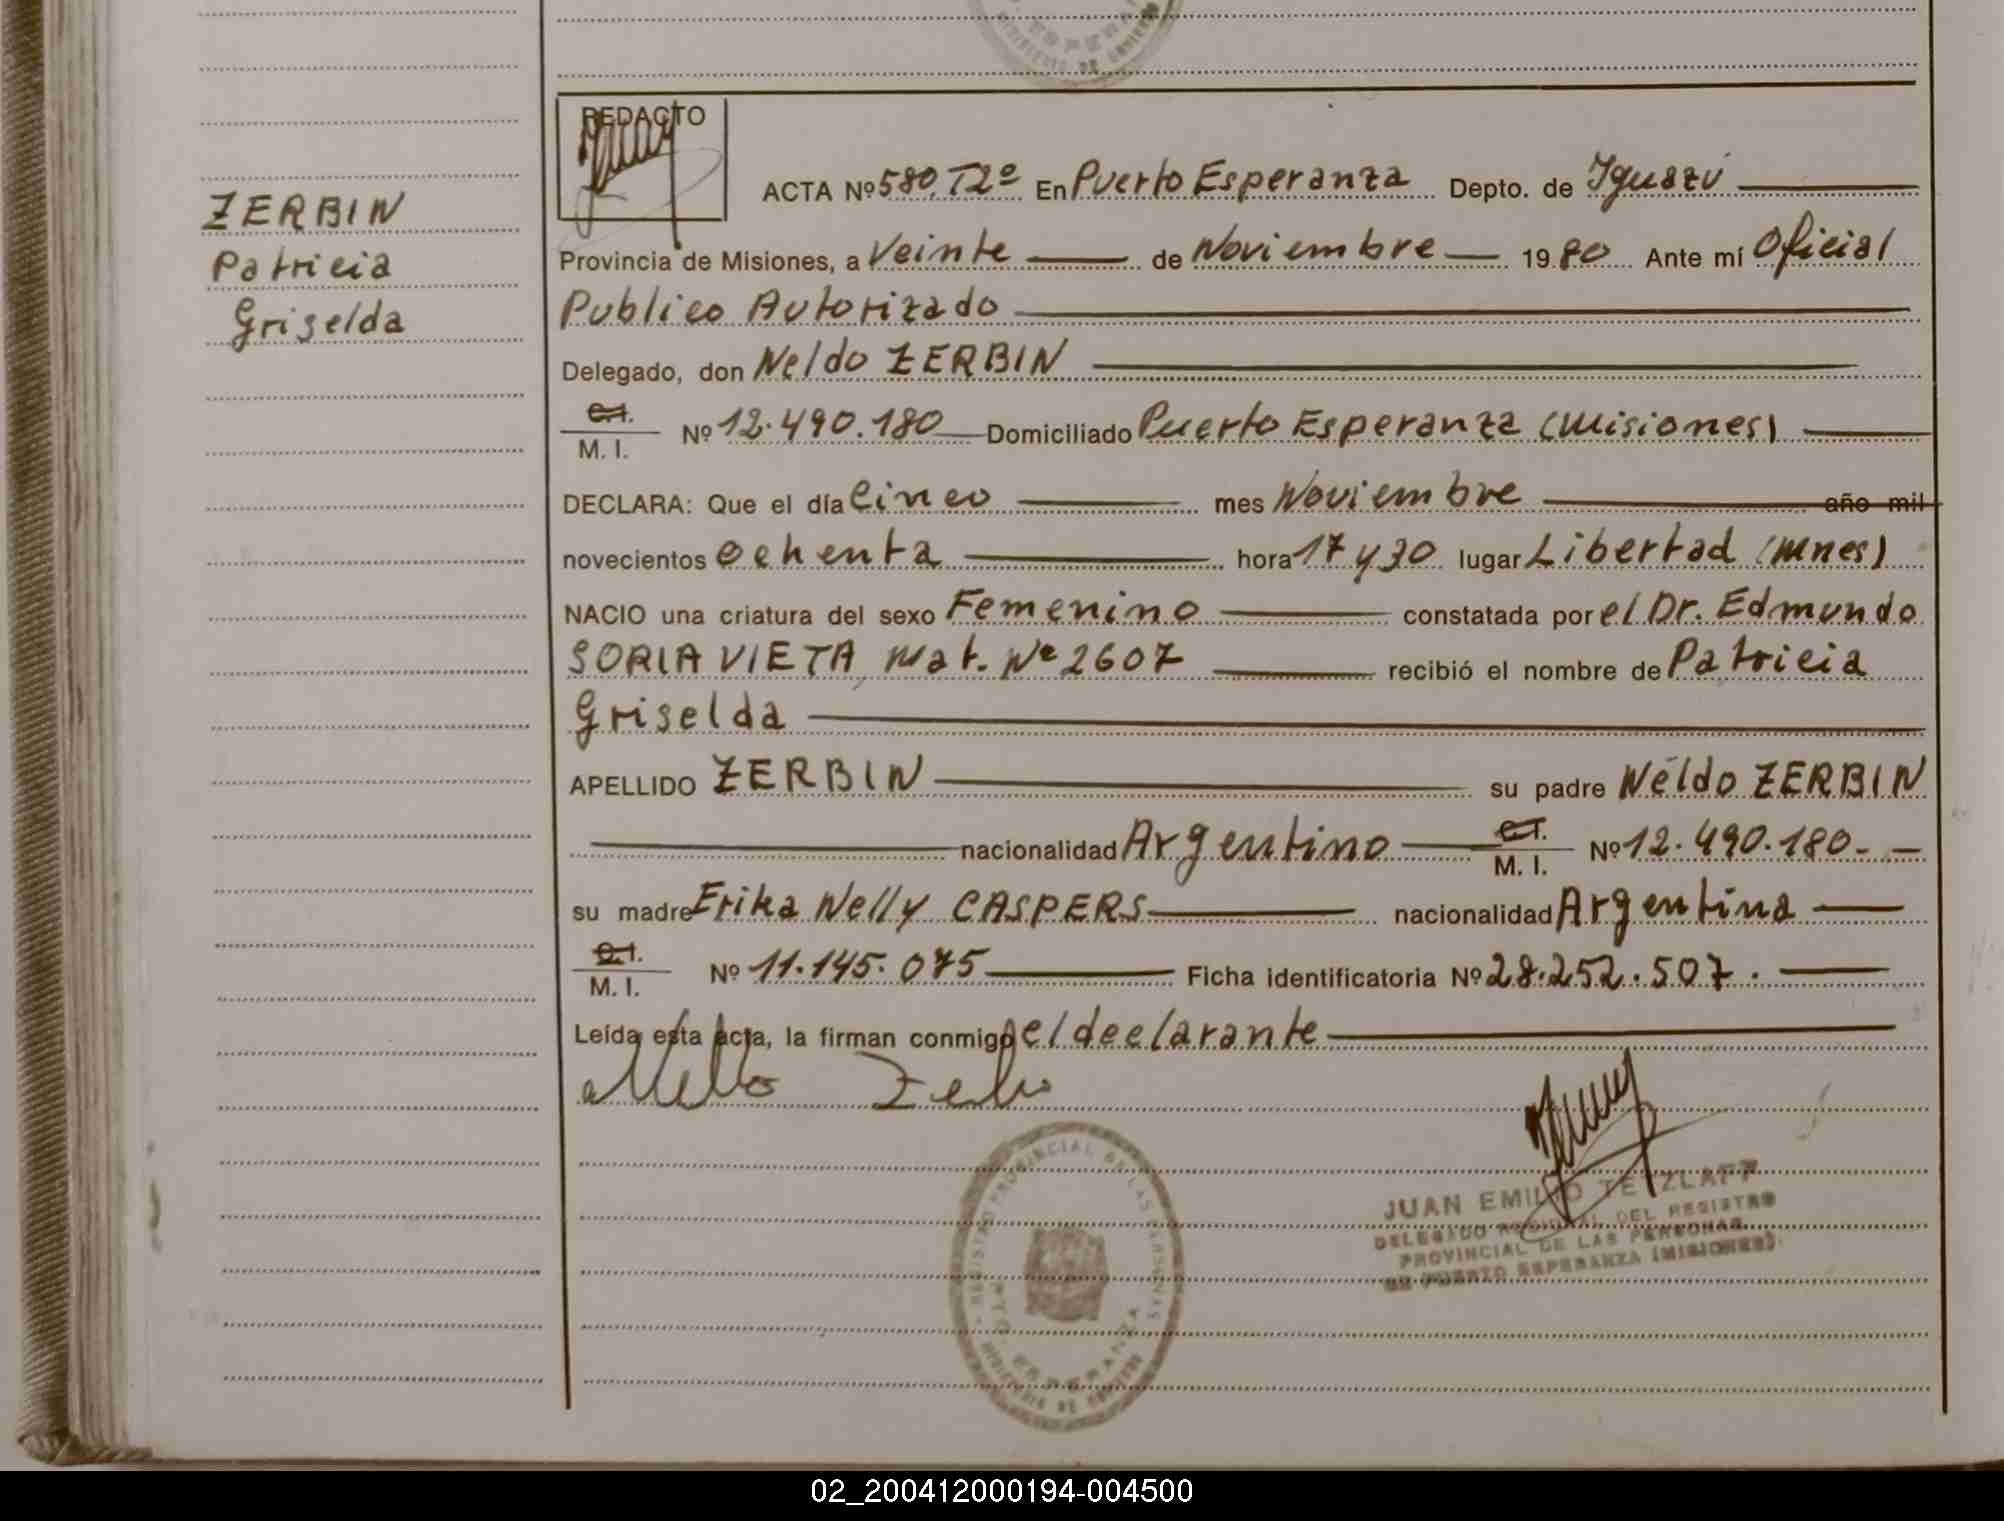 ESPERANZA
MINISTERIO DE GOBIERNO
REDACTO
ACTA Nº 580, T2º En Puerto Esperanza Depto. de Iguazú
Provincia de Misiones, a Veinte de Noviembre 1980 Ante mí Oficial
Publico Autorizado
Delegado, don Neldo ZERBIN
C.I.
M. I. Nº 12.490.180 Domiciliado Puerto Esperanza (Misiones)
DECLARA: Que el día Cinco mes Noviembre año mil
novecientos ochenta hora 17 y 30 lugar Libertad (Mnes)
NACIO una criatura del sexo Femenino constatada por el Dr. Edmundo
SORIA VIETA, Mat. Nº 2607 recibió el nombre de Patricia
Griselda
APELLIDO ZERBIN su padre Néldo ZERBIN
nacionalidad Argentino C.I. M. I. Nº 12.490.180.-
su madre Erika Nelly CASPERS nacionalidad Argentina
C.I.
M. I. Nº 11.145.075 Ficha identificatoria Nº 28.252.507.
Leída esta acta, la firman conmigo el declarante
Neldo Zerbin
ZERBIN
Patricia
Griselda
REGISTRO PROVINCIAL DE LAS PERSONAS
PTO. ESPERANZA
MINISTERIO DE GOBIERNO
JUAN EMILIO TETZLAFF
DELEGADO REGIONAL DEL REGISTRO
PROVINCIAL DE LAS PERSONAS
DE PUERTO ESPERANZA (MISIONES)
02_200412000194-004500